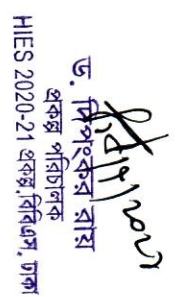 ড. দিপংকর রায়
প্রকল্প পরিচালক
HIES 2020-21 প্রকল্প,বিবিএস, ঢাকা